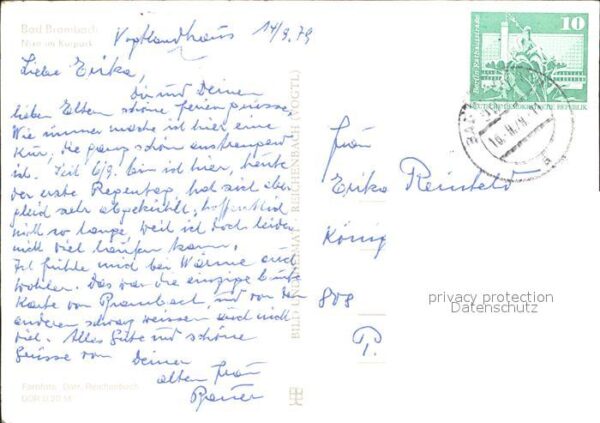 Bad Brambach
Nixe im Kurpark
Vogtlandhaus 14/9.79
Liebe Erika,
Dir und Deinen
lieben Eltern schöne Feriengrüsse,
Wie immer mache ich hier eine
Kur, die ganz schön anstrengend
ist. Seit 6/9. bin ich hier, heute
der erste Regentag, hat sich aber
gleich sehr abgekühlt, hoffentlich
nicht so lange, weil ich doch leider
nicht viel laufen kann.
Ich fühle mich bei Wärme auch
wohler. Das war die einzige bunte
Karte von Brambach, und von den
anderen schwarz weissen auch nicht
viel. Alles Gute und schöne
Grüsse von Deiner
alten Frau
Bauer
Farbfoto: Darr, Reichenbach
BILD REICHENBACH (VOGTL)
10
Berlin, Rathausstraße
DEUTSCHE DEMOKRATISCHE REPUBLIK
Frau
Erika Reinfeld
König
808
P.
privacy protection
Datenschutz